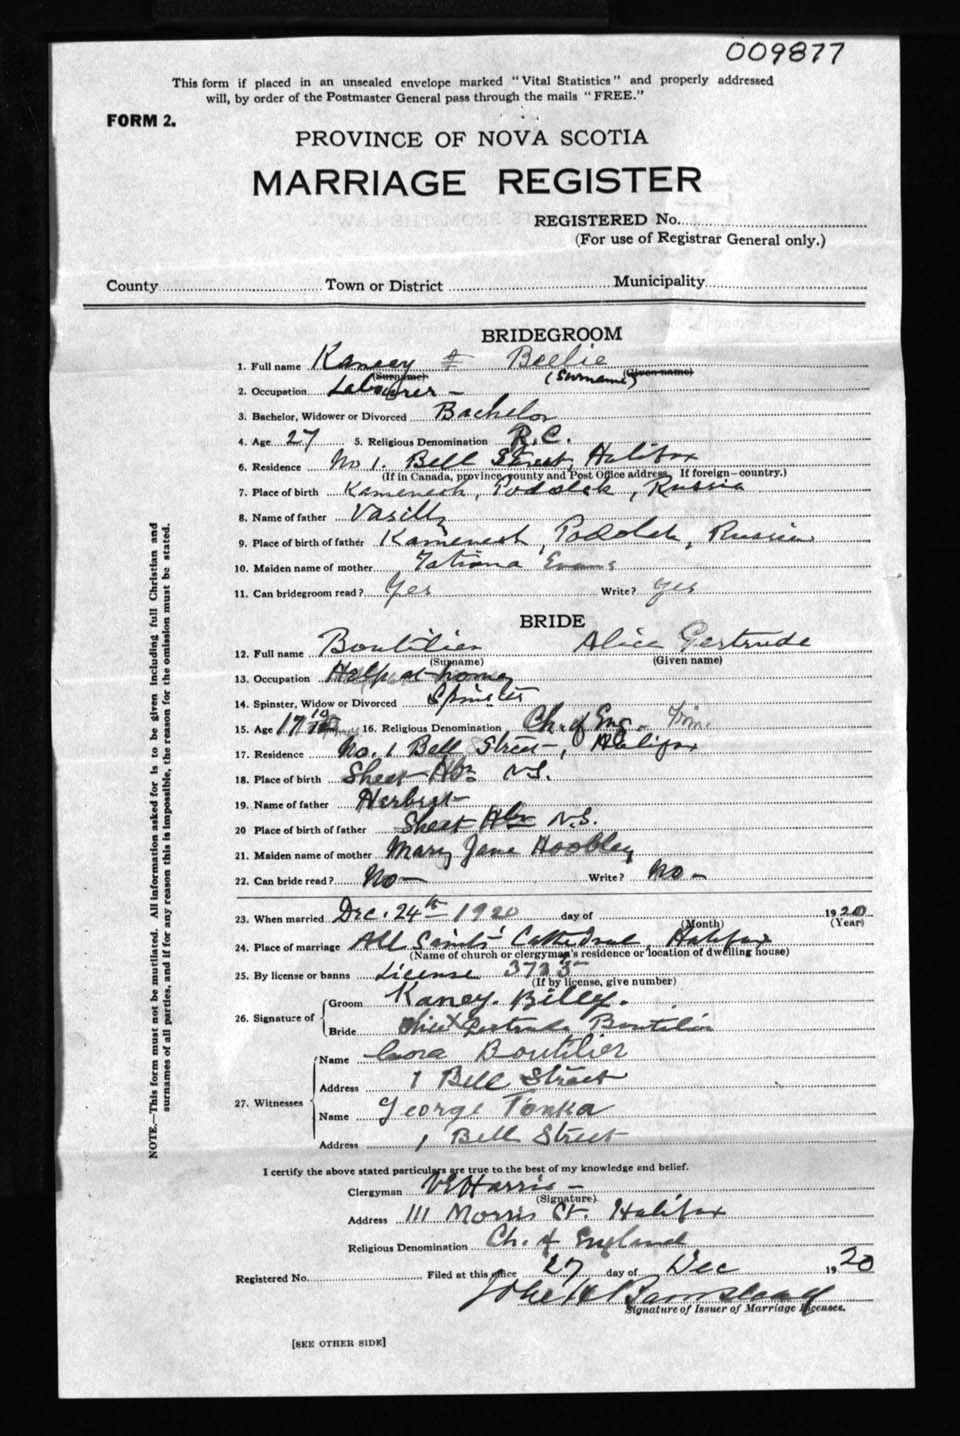 009877
This form if placed in an unsealed envelope marked "Vital Statistics" and properly addressed
will, by order of the Postmaster General pass through the mails "FREE."
FORM 2.
PROVINCE OF NOVA SCOTIA
MARRIAGE REGISTER
REGISTERED No.
(For use of Registrar General only.)
County Town or District Municipality
BRIDEGROOM
1. Full name Kaneey Beelie
(Surname) (Surname) (Given name)
2. Occupation Labourer -
3. Bachelor, Widower or Divorced Bachelor
4. Age 27 5. Religious Denomination R.C.
6. Residence No 1. Bell Street, Halifax
(If in Canada, province, county and Post Office address. If foreign—country.)
7. Place of birth Kamenesk, Podolsk, Russia
8. Name of father Vasilly
9. Place of birth of father Kamenesk, Podolsk, Russia
10. Maiden name of mother Tatiana Evans
11. Can bridegroom read? Yes Write? Yes
BRIDE
12. Full name Boutilier Alice Gertrude
(Surname) (Given name)
13. Occupation Help at home
14. Spinster, Widow or Divorced Spinster
15. Age 17 10/12 16. Religious Denomination Ch. of Eng.
17. Residence No. 1 Bell Street, Halifax
18. Place of birth Sheet Hbr N.S.
19. Name of father Herbert
20 Place of birth of father Sheet Hbr N.S.
21. Maiden name of mother Mary Jane Hoobley
22. Can bride read? No - Write? No -
23. When married Dec. 24th 1920 day of 1920
(Month) (Year)
24. Place of marriage All Saints' Cathedral, Halifax
(Name of church or clergyman's residence or location of dwelling house)
25. By license or banns License 3723
(If by license, give number)
26. Signature of
Groom Kaney. Billy.
Bride Alice Gertrude Boutilier
27. Witnesses
Name Boutilier
Address 1 Bell Street
Name George Tonka
Address 1 Bell Street
I certify the above stated particulars are true to the best of my knowledge and belief.
Clergyman V E Harris -
(Signature)
Address 111 Morris St. Halifax
Religious Denomination Ch. of England
Registered No. Filed at this office 27 day of Dec 1920
Signature of Issuer of Marriage Licenses.
[SEE OTHER SIDE]
NOTE.—This form must not be mutilated. All information asked for is to be given including full Christian and
surnames of all parties, and if for any reason this is impossible, the reason for the omission must be stated.